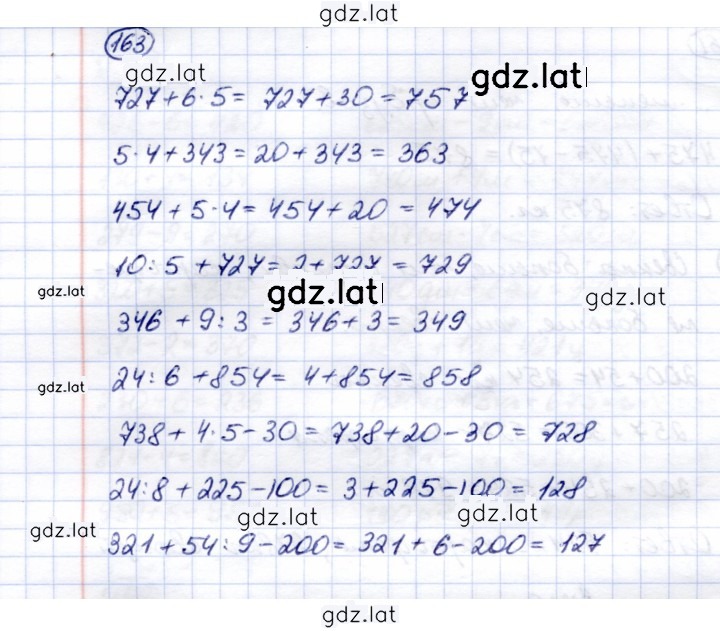 gdz.lat
163
gdz.lat gdz.lat
727+6·5= 727+30=757
5·4+343=20+343=363
454+5·4=454+20=474
10:5+727=2+727=729
gdz.lat gdz.lat gdz.lat
346+9:3=346+3=349
24:6+854=4+854=858
gdz.lat
738+4·5-30=738+20-30=728
24:8+225-100=3+225-100=128
gdz.lat gdz.lat gdz.lat
321+54:9-200=321+6-200=127
gdz.lat